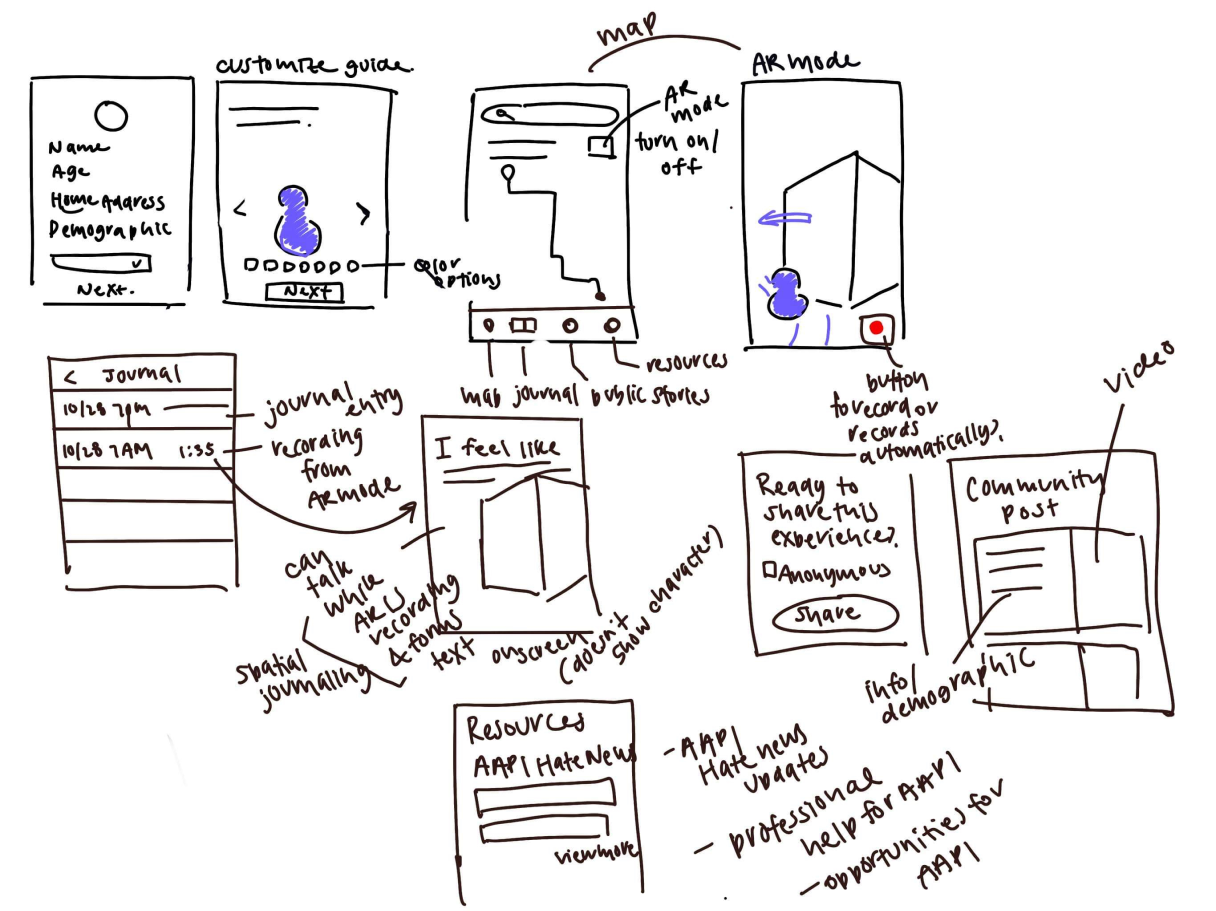 map
customize guide.
AR mode
Name
Age
Home Address
Demographic
Next.
Next
color
options
AR
mode
turn on/
off
map journal public stories
resources
button
to record or
records
automatically?
< Journal
10/28 7pm
10/28 7AM 1:35
journal
entry
recording
from
AR mode
I feel like
can
talk
while
AR is
recording
& forms
text onscreen
(doesn't
show character)
spatial
journaling
Ready to
share this
experience?
Anonymous
Share
video
Community
post
info/
demographic
Resources
AAPI Hate News
view more
- AAPI
Hate news
updates
- professional
help for AAPI
- opportunities for
AAPI